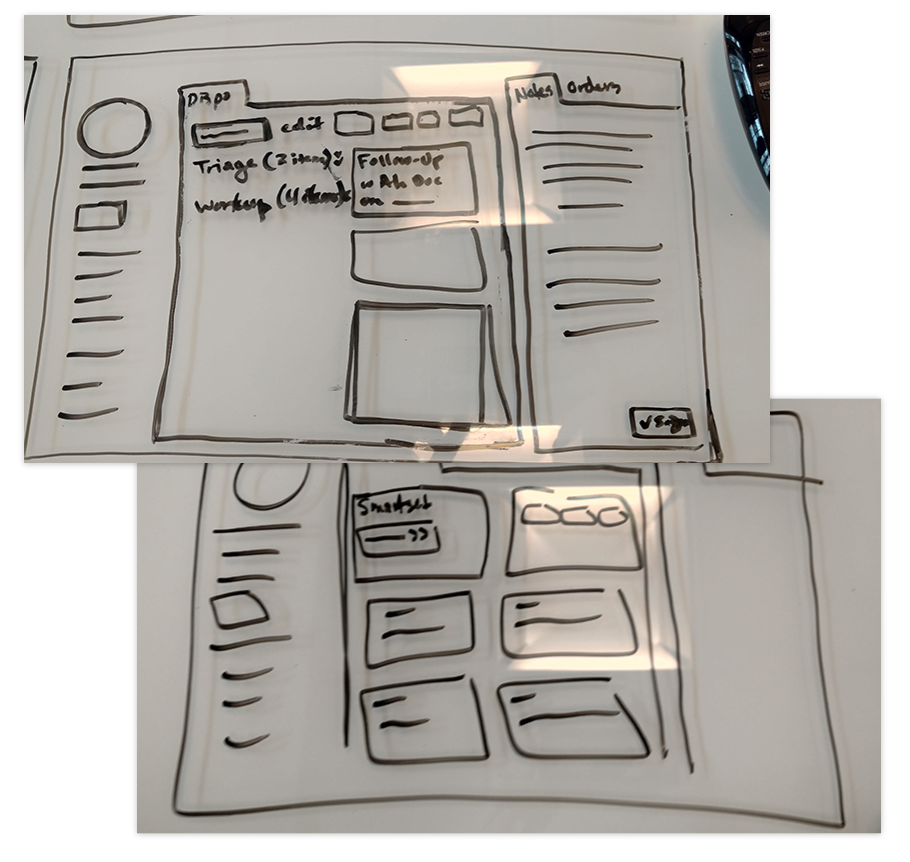 Dispo
edit
Triage (2 items)
Workup (4 items)
Follow-Up
w Ab Doc
on
Notes Orders
Smartset
>>